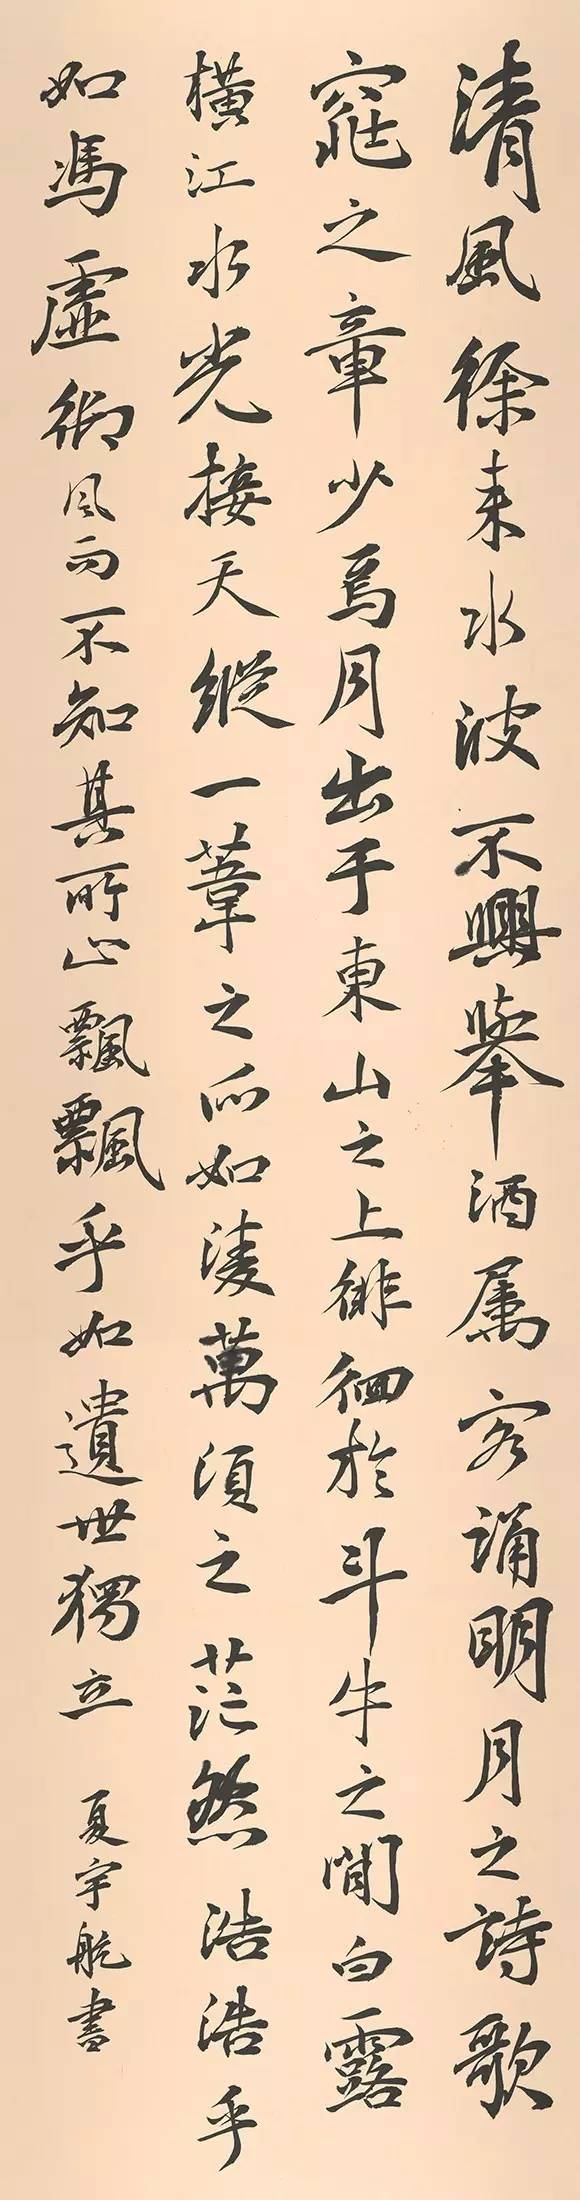 清風徐来水波不興舉酒属客誦明月之詩歌
窕之章少焉月出于東山之上徘徊於斗牛之間白露
橫江水光接天縱一葦之所如凌萬頃之茫然浩浩乎
如馮虛御风而不知其所止飄飄乎如遺世獨立
夏宇航書